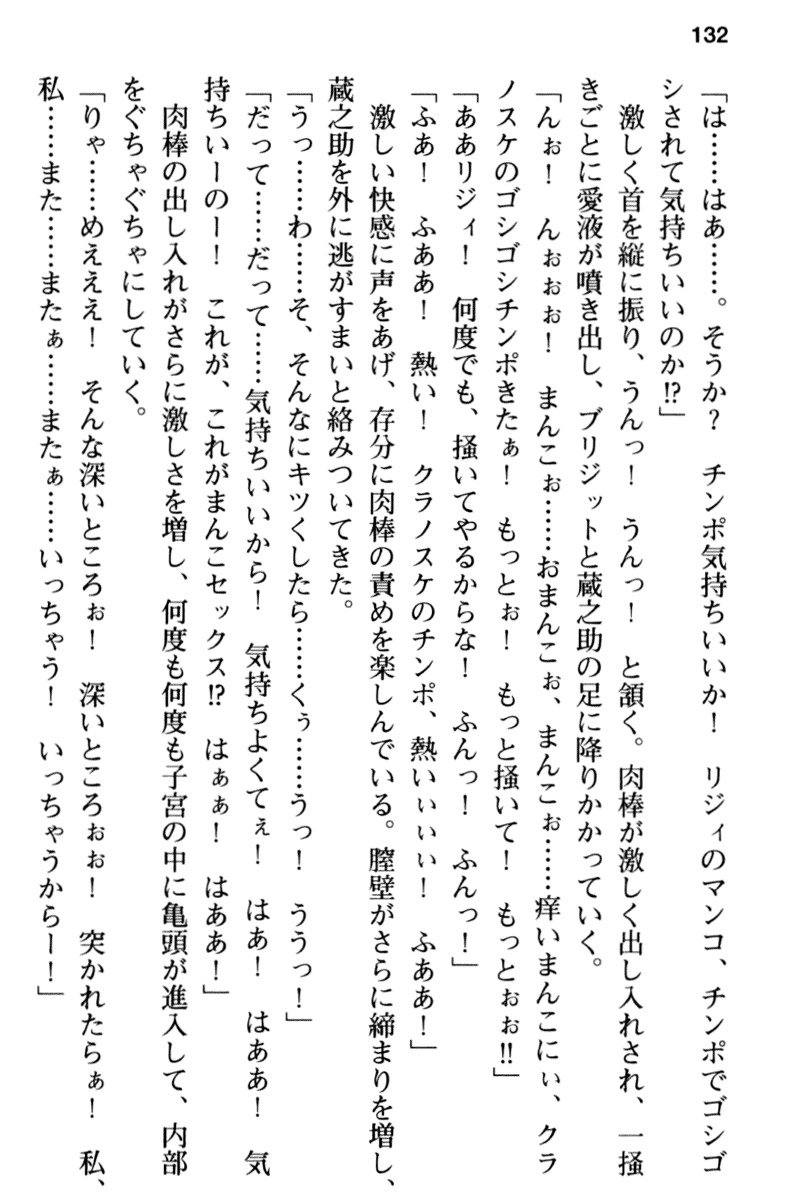 132
「は……はあ……。そうか？　チンポ気持ちいいか！　リジィのマンコ、チンポでゴシゴ
シされて気持ちいいのか!?」
　激しく首を縦に振り、うんっ！　うんっ！　と頷く。肉棒が激しく出し入れされ、一掻
きごとに愛液が噴き出し、ブリジットと蔵之助の足に降りかかっていく。
「んぉ！　んぉぉぉ！　まんこぉ……おまんこぉ、まんこぉ……痒いまんこにぃ、クラ
ノスケのゴシゴシチンポきたぁ！　もっとぉ！　もっと掻いて！　もっとぉぉ!!」
「ああリジィ！　何度でも、掻いてやるからな！　ふんっ！　ふんっ！」
「ふあ！　ふああ！　熱い！　クラノスケのチンポ、熱いぃぃぃ！　ふああ！」
　激しい快感に声をあげ、存分に肉棒の責めを楽しんでいる。膣壁がさらに締まりを増し、
蔵之助を外に逃がすまいと絡みついてきた。
「うっ……わ……そ、そんなにキツくしたら……くぅ……うっ！　ううっ！」
「だって……だって……気持ちいいから！　気持ちよくてぇ！　はあ！　はああ！　気
持ちいーのー！　これが、これがまんこセックス!?　はぁぁ！　はああ！」
　肉棒の出し入れがさらに激しさを増し、何度も何度も子宮の中に亀頭が進入して、内部
をぐちゃぐちゃにしていく。
「りゃ……めえええ！　そんな深いところぉ！　深いところぉぉ！　突かれたらぁ！　私、
私……また……またぁ……またぁ……いっちゃう！　いっちゃうからー！」